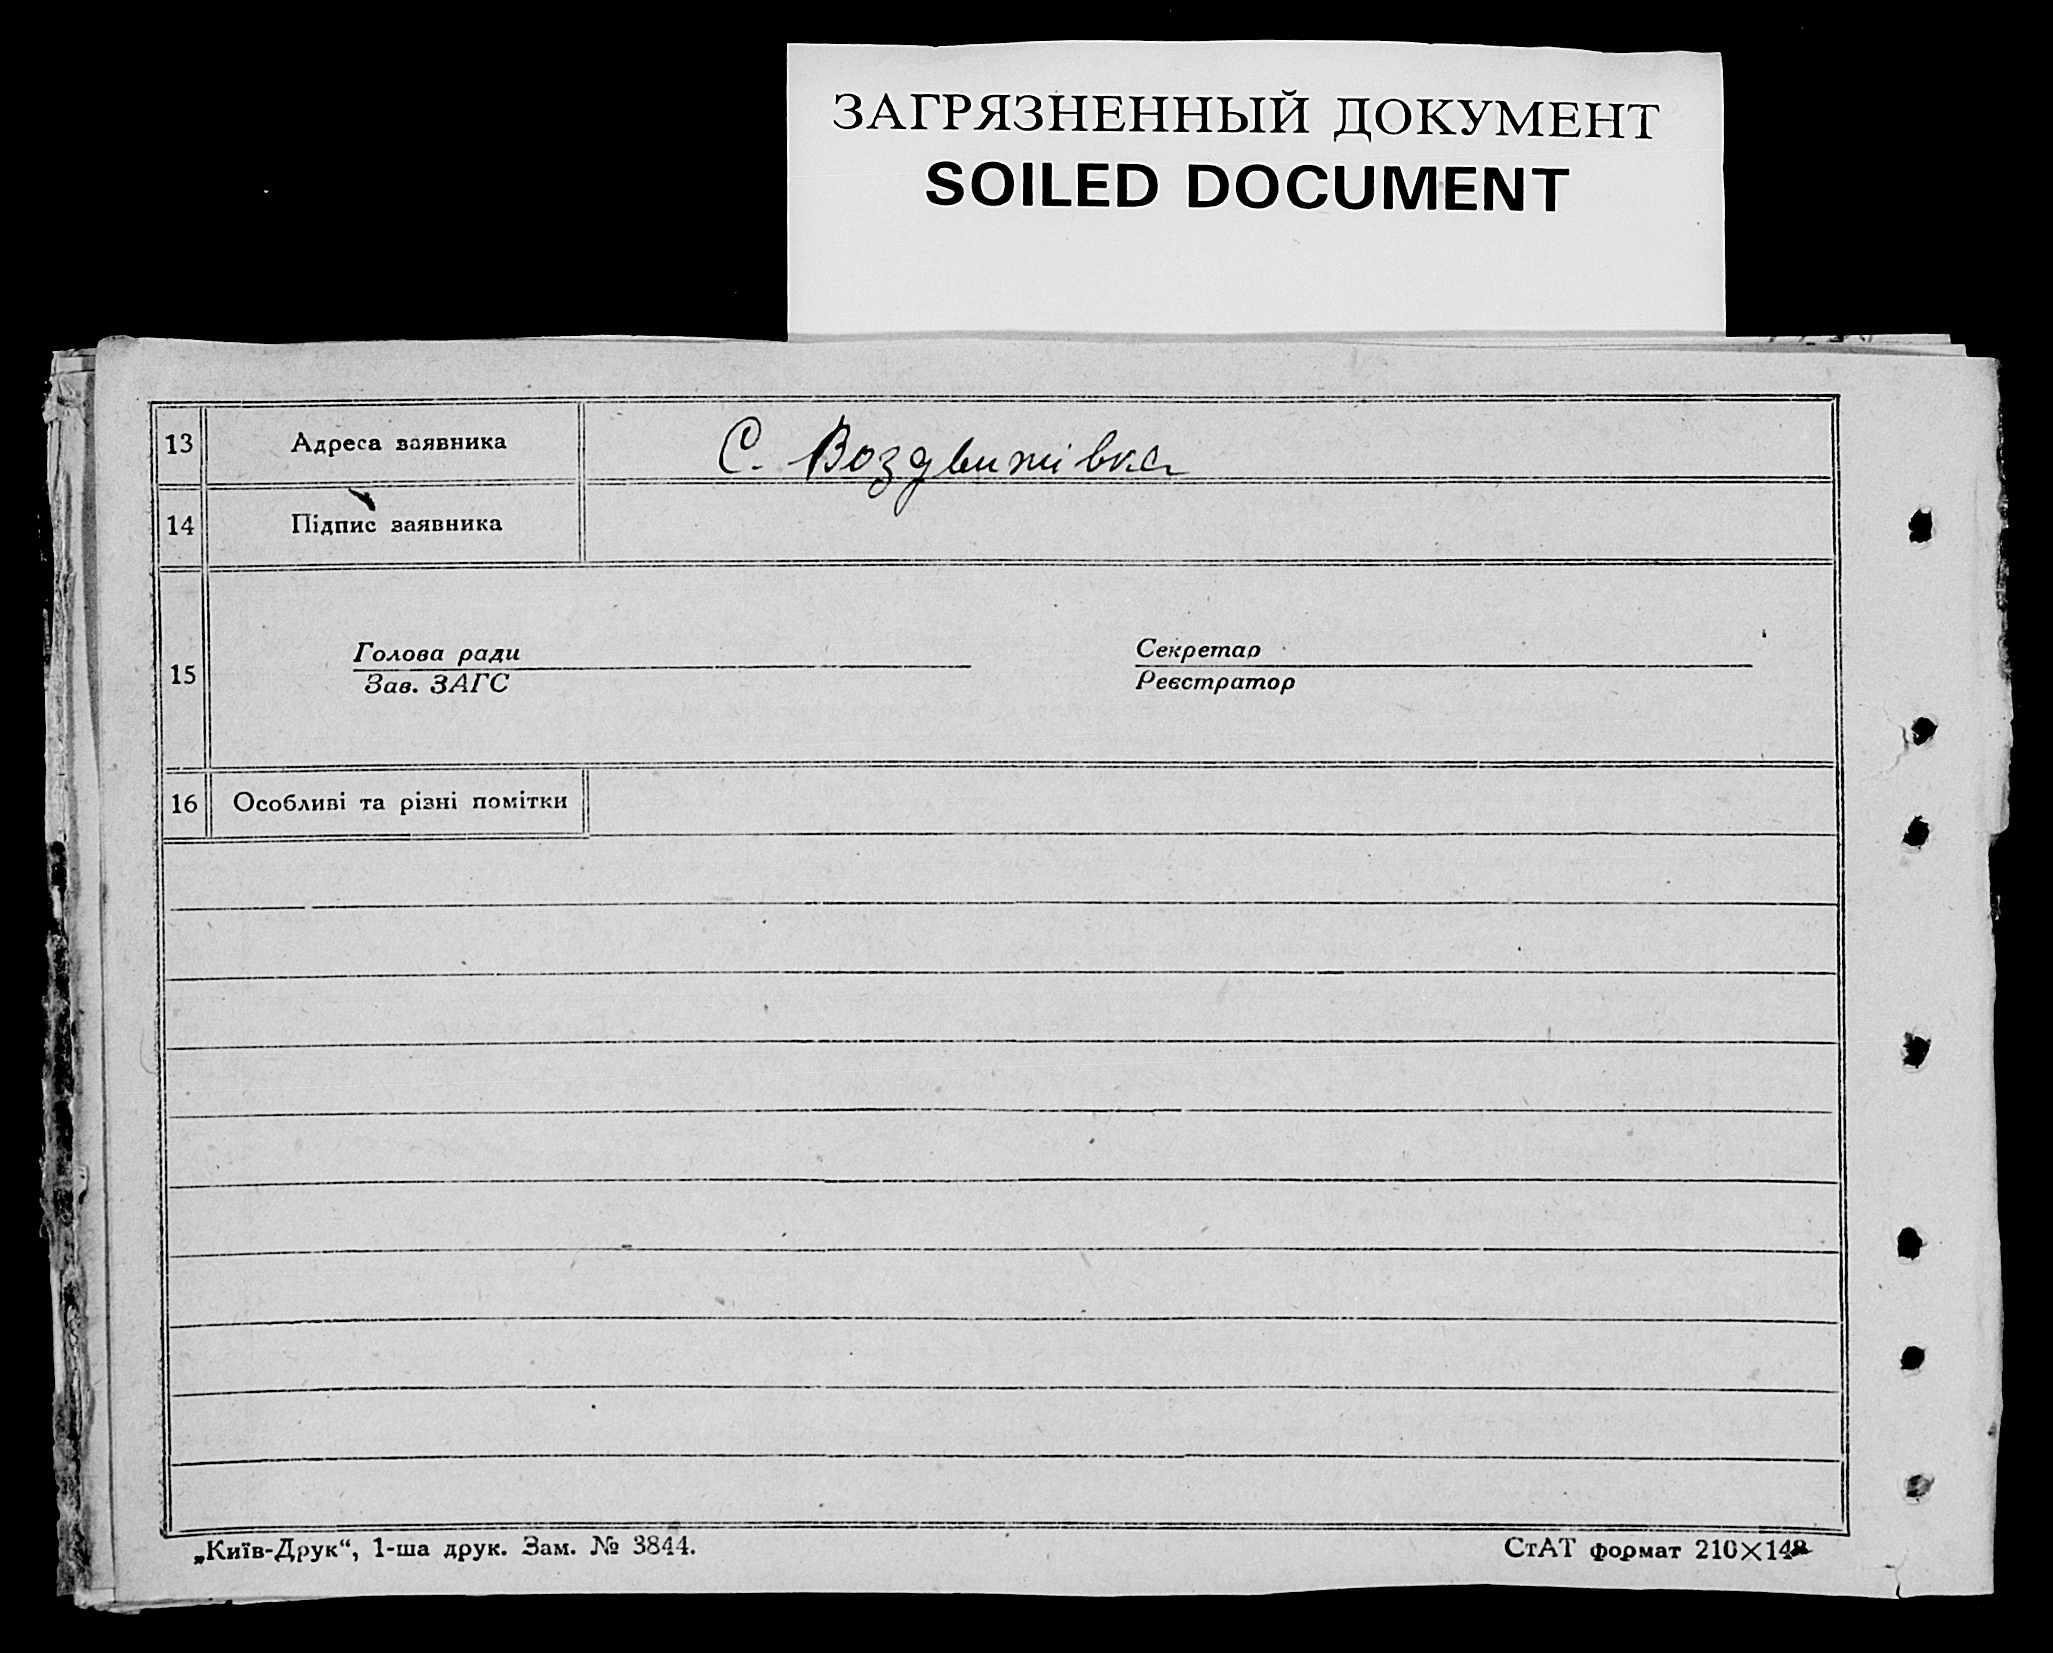 ЗАГРЯЗНЕННЫЙ ДОКУМЕНТ
SOILED DOCUMENT
13 Адреса заявника С. Воздвижівка
14 Підпис заявника
15 Голова ради Секретар
Зав. ЗАГС Реєстратор
16 Особливі та різні помітки
„Київ-Друк“, 1-ша друк. Зам. № 3844. СтАТ формат 210×148